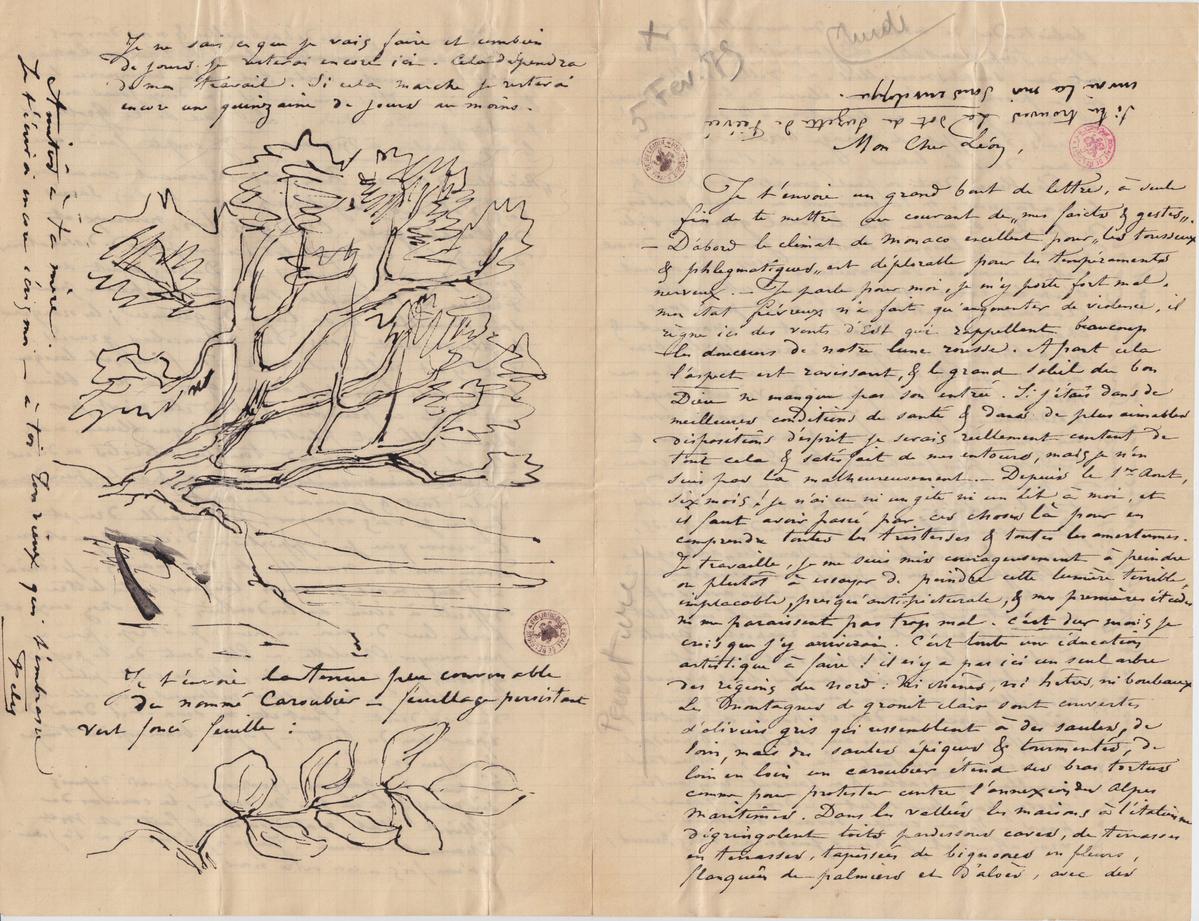 Je ne sais ce que je vais faire et combien
de jours je resterai encore ici. Cela dépendra
de mon travail. Si cela marche je resterai
encore une quinzaine de jours au moins.
Je t'envoie la tenue peu convenable
du nommé Caroubier — feuillage persistant
vert foncé feuille :
Amitiés à ta mère.
Je t'écrirai encore écris moi — à toi Ton vieux qui t'embrasse
5 Fev. 
Si tu trouves la Dot de Suzette de Fiévée
envoie la moi sous enveloppe.
Mon Cher Léon,
Je t'envoie un grand bout de lettre, à seule
fin de te mettre au courant de „mes faicts & gestes".
— D'abord le climat de Monaco excellent pour „les tousseux
& phlegmatiques„ est déplorable pour les tempéraments
nerveux. — Je parle pour moi, je m'y porte fort mal,
mon état fiévreux n'a fait qu'augmenter de violence, il
règne ici des vents d'Est qui rappellent beaucoup
les douceurs de notre lune rousse. A part cela
l'aspect est ravissant, & le grand soleil du bon
Dieu ne manque pas son entrée. Si j'étais dans de
meilleures conditions de santé & dans de plus aimables
dispositions d'esprit je serais réellement content de
tout cela & satisfait de mes entours, mais je n'en
suis pas là malheureusement. — Depuis le 1er Aout,
six mois ! je n'ai eu ni un gîte ni un lit à moi, et
il faut avoir passé par ces choses là pour en
comprendre toutes les tristesses & toutes les amertumes.
Je travaille, je me suis mis courageusement à peindre
ou plutôt à essayer de peindre cette lumière terrible,
implacable, presqu'antipicturale, & mes premières études
ne me paraissent pas trop mal. c'est dur mais je
crois que j'y arriverai. C'est toute une éducation
artistique à faire ! il n'y a pas ici un seul arbre
des régions du nord : Ni chênes, ni hetres, ni bouleaux
Les Montagnes de granit clair sont couvertes
d'oliviers gris qui ressemblent à des saules, de
loin, mais des saules épiques & tourmentés, de
loin en loin un caroubier étend ses bras tortus
comme pour protester contre l'annexion des Alpes
maritimes. Dans les vallées les maisons à l'italienne
dégringolent toits pardessous caves, de terrasses
en terrasses, tapissées de bignones en fleurs,
flanquées de palmiers et d'aloès, avec des
Peinture